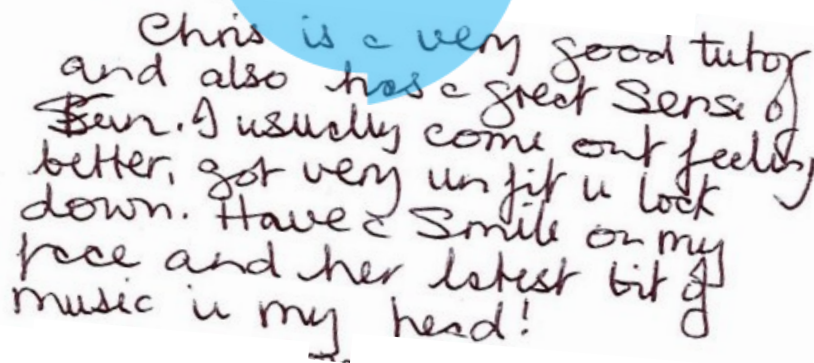 Chris is a very good tutor
and also has a great sense of
fun. I usually come out feeling
better, got very unfit in lock
down. Have a smile on my
face and her latest bit of
music in my head!